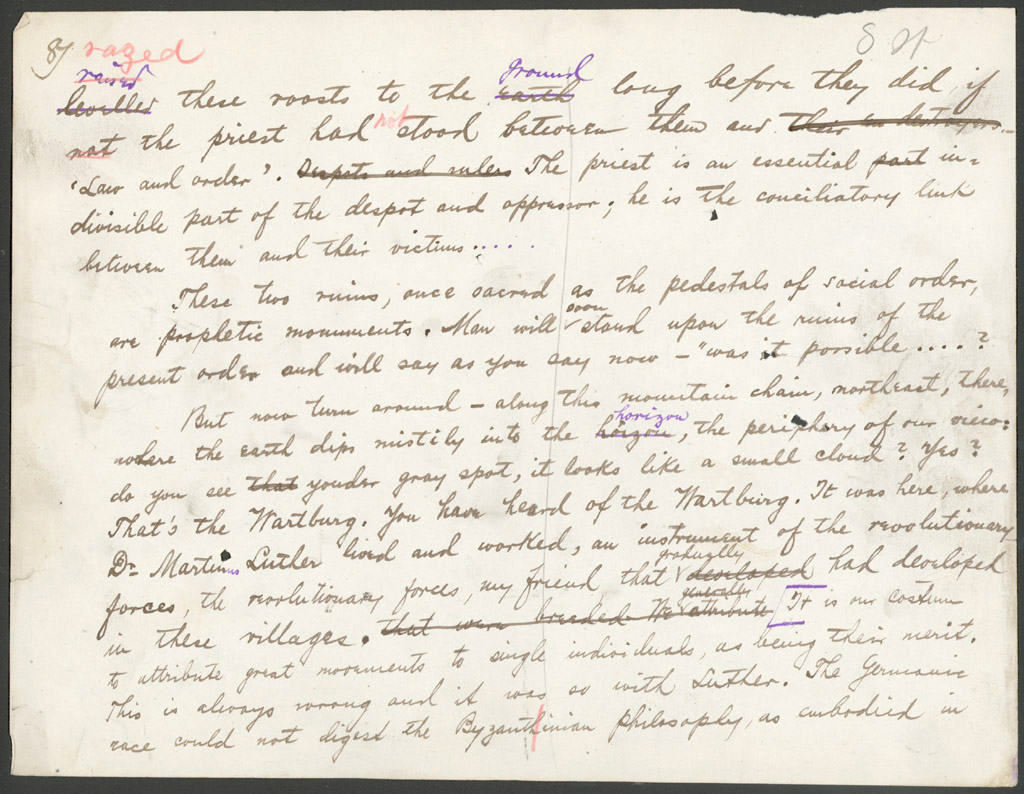 8) razed 8 pt
raised ground
levelled these roosts to the earth long before they did, if
not the priest had not stood between them and their destroyers.—
'Law and order'. Despots and rulers The priest is an essential part in=
divisible part of the despot and oppressor; he is the conciliatory link
between them and their victims.....
These two ruins, once sacred as the pedestals of social order,
soon
are prophetic monuments. Man will stand upon the ruins of the
present order and will say as you say now — "was it possible ....?
But now turn around — along this mountain chain, northeast, there,
horizon
where the earth dips mistily into the hoizon, the periphery of our view:
do you see that yonder gray spot, it looks like a small cloud? Yes?
That's the Wartburg. You have heard of the Wartburg. It was here, where
Dr. Martinus Luther lived and worked, an instrument of the revolutionary
gradually
forces, the revolutionary forces, my friend that developed had developed
generally
in these villages. that were breeded We attribute It is our costum
to attribute great movements to single individuals, as being their merit.
This is always wrong and it was so with Luther. The Germanic
race could not digest the Byzanthinian philosophy, as embodied in